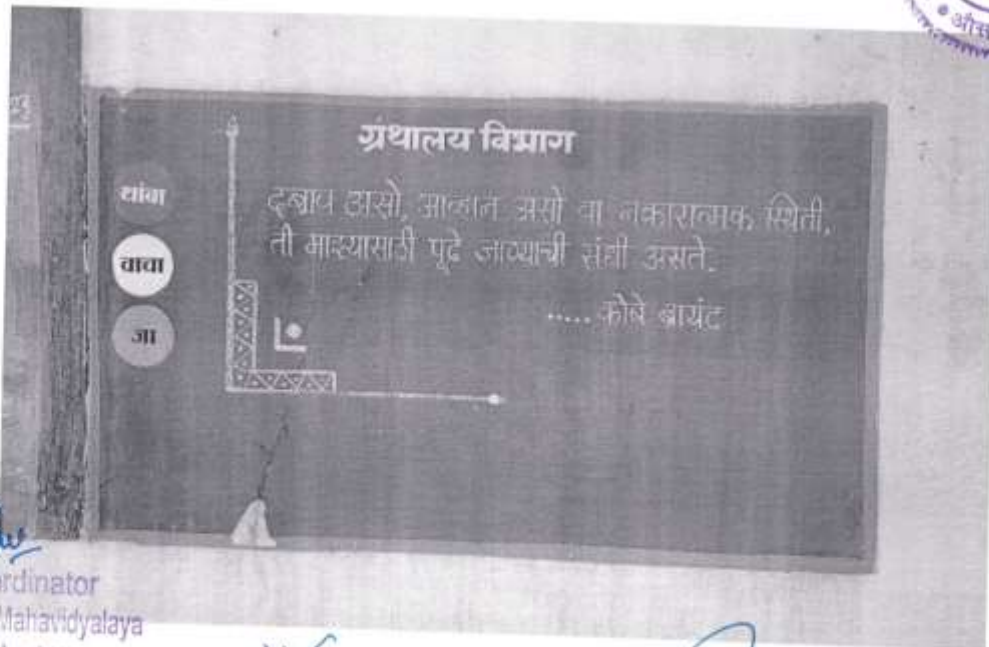 ग्रंथालय विभाग
थांबा
वाचा
जा
दबाव असो, आव्हान असो वा नकारात्मक स्थिती,
ती माझ्यासाठी पूढे जाण्याची संधी असते.
..... कोबे ब्रायंट
rdinator
Mahavidyalaya